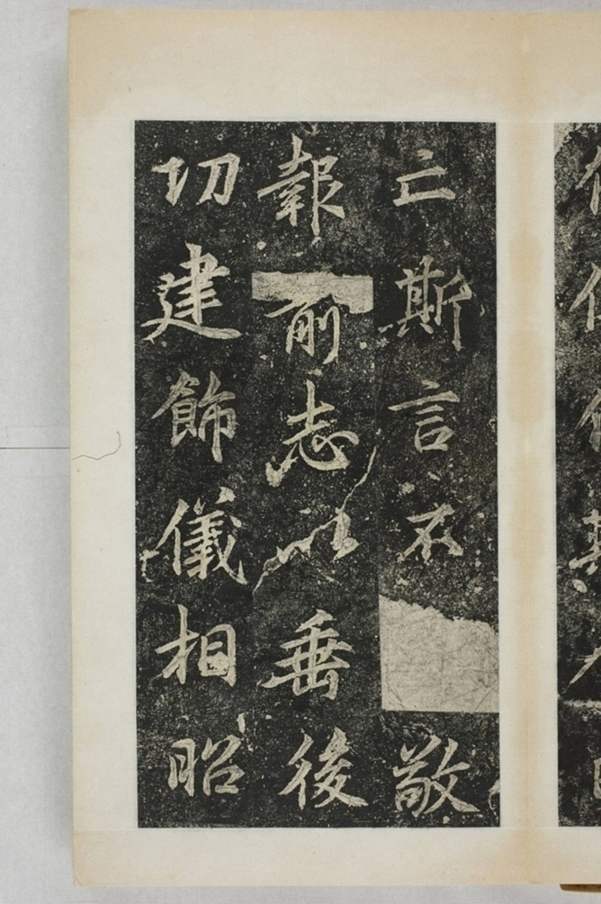 亡斯言不敬
報前志以垂後
切建飾儀相昭